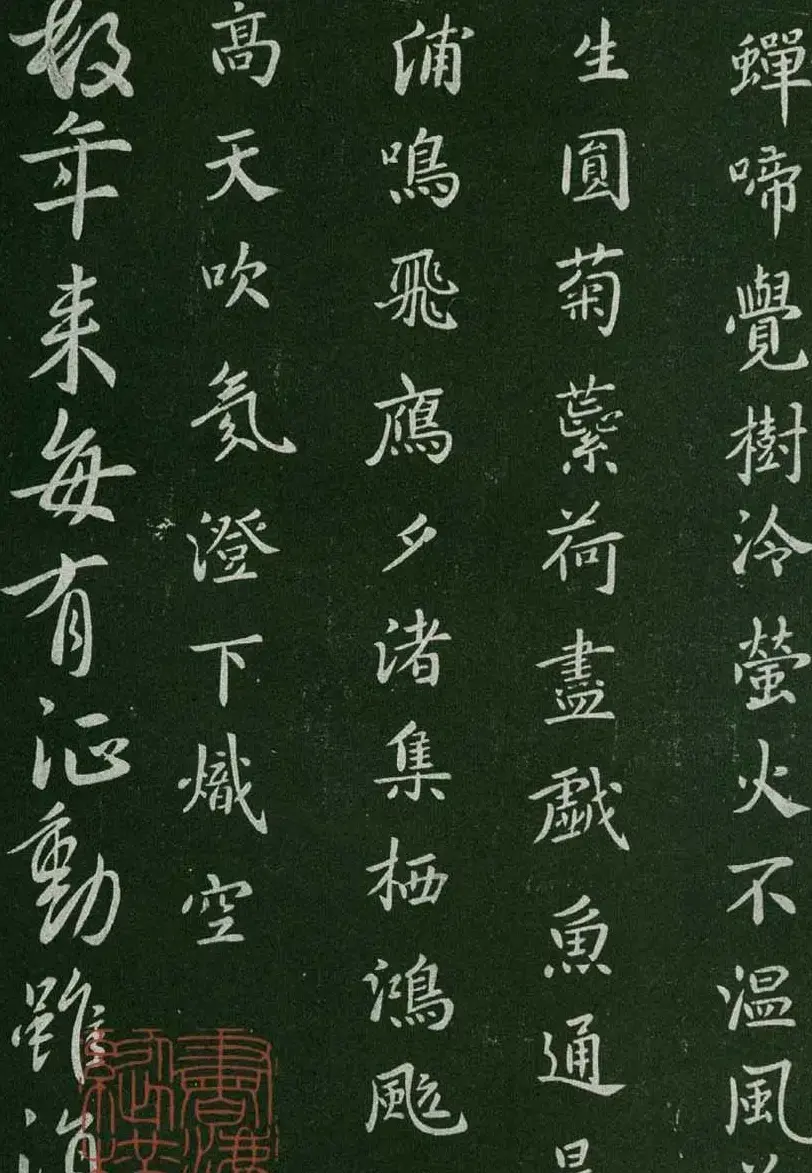 蟬啼覺樹泠螢火不温風
生圓菊蘂荷盡戲魚通
浦鳴飛鴈夕渚集栖鴻颯
高天吹氛澄下熾空
年来每有動雖